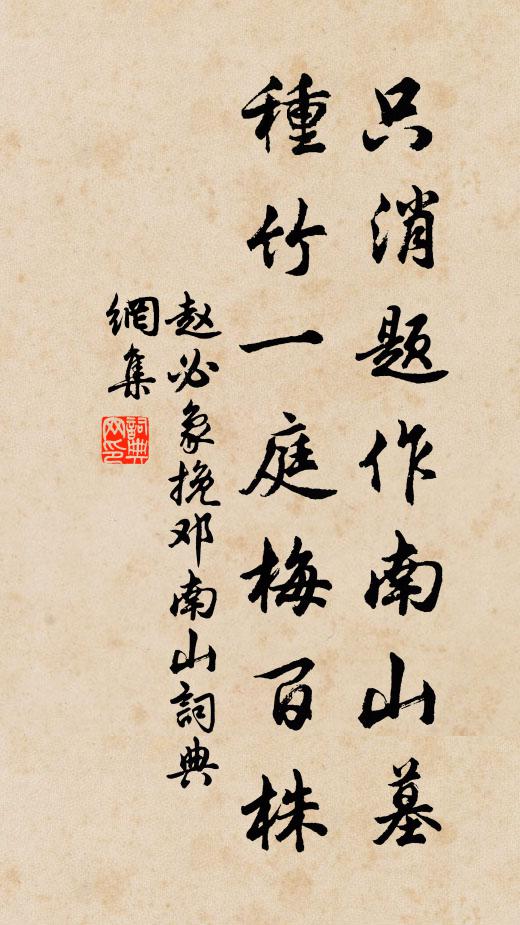 只消题作南山墓
種竹一庭梅百株
赵必象挽邓南山詞典
網集
詞典网印